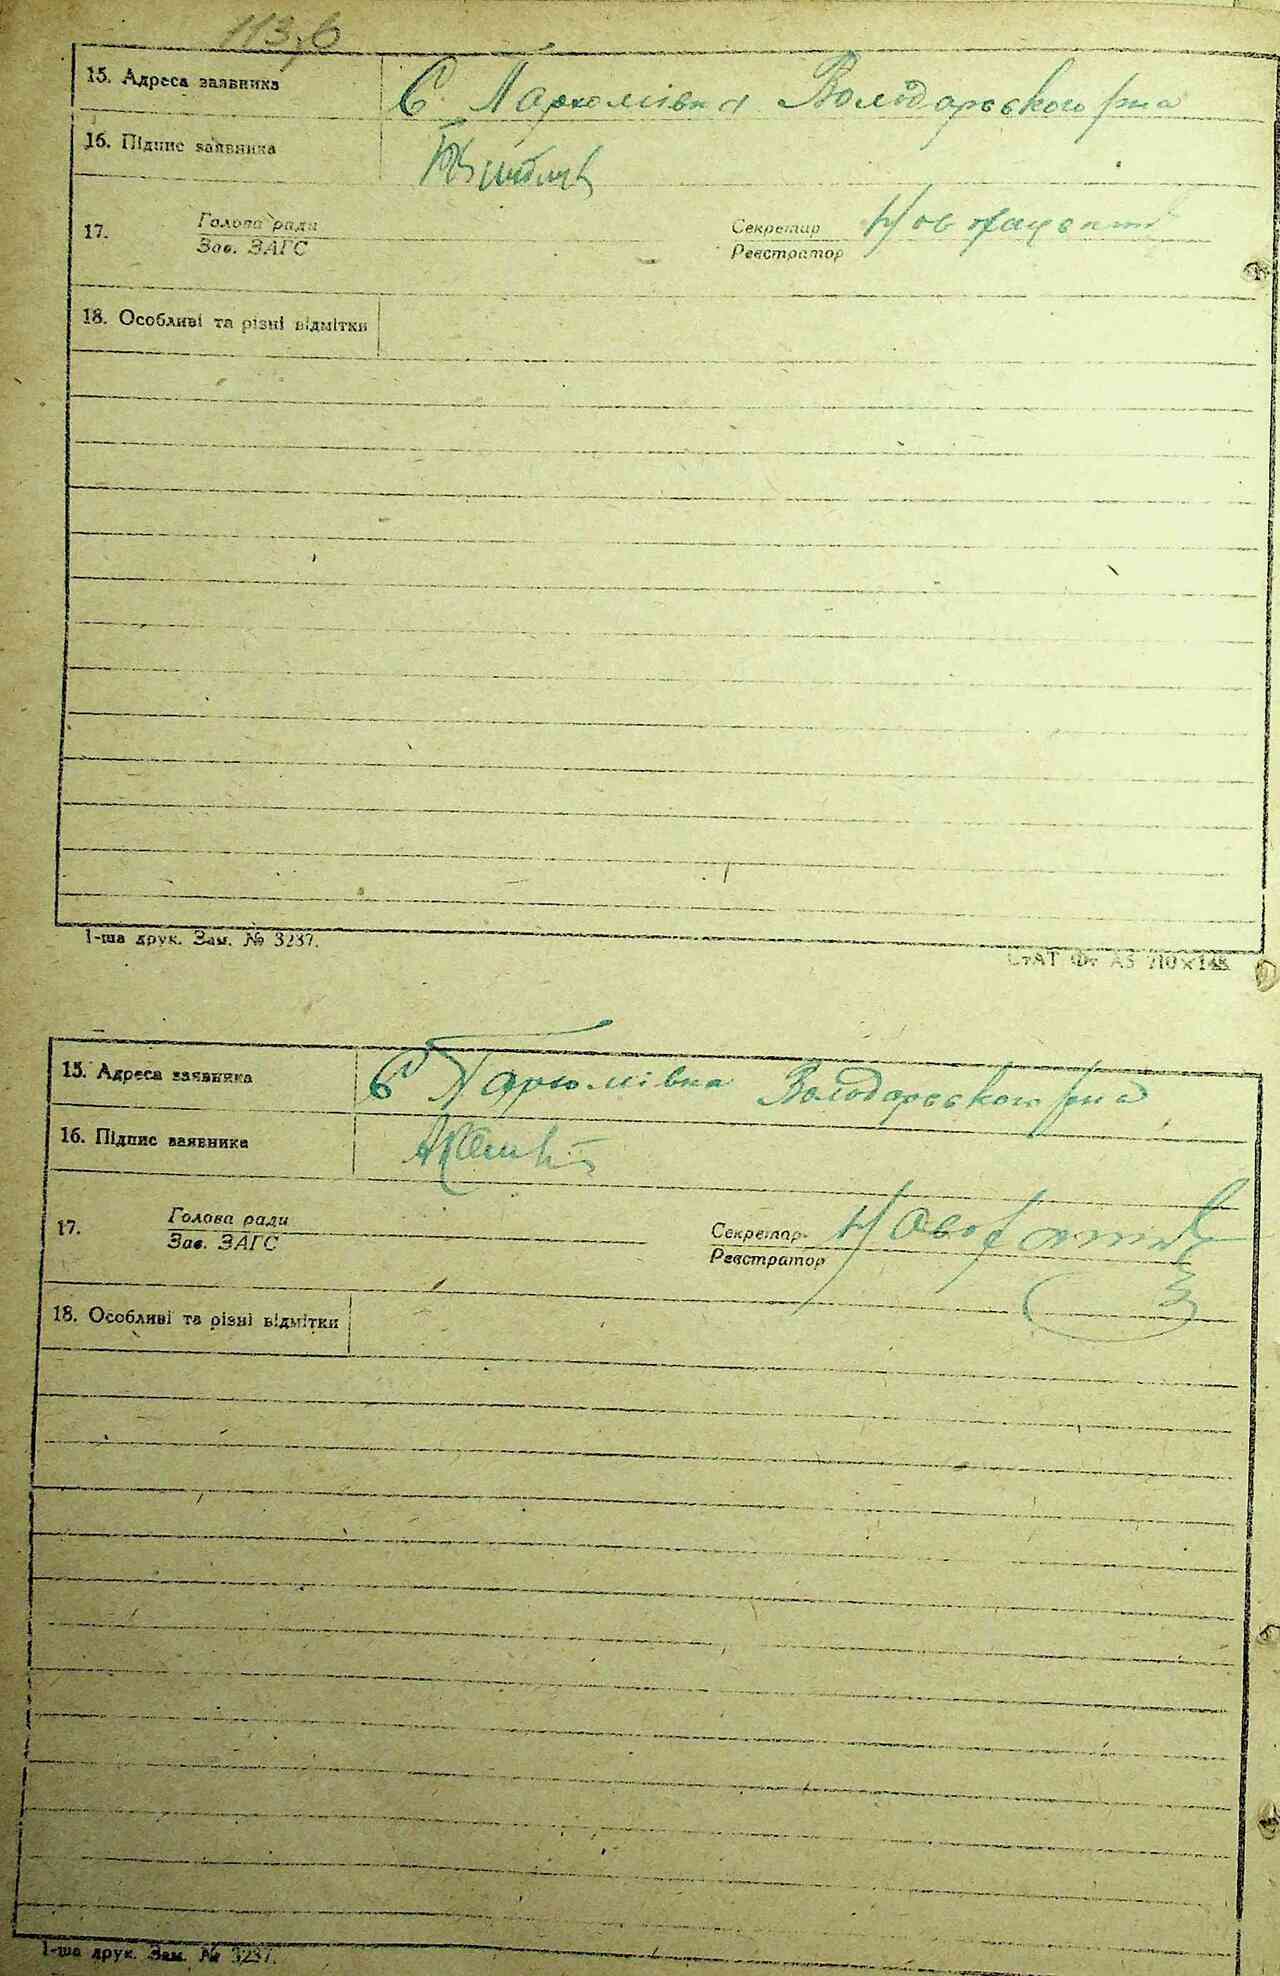 113,б
15. Адреса заявника С. Пархомівка Володарського р-на
16. Підпис заявника
17. Голова ради Секретар
Зав. ЗАГС Реєстратор
18. Особливі та різні відмітки
1-ша друк. Зам. № 3237.
СтАТ Фт А5 210×148
15. Адреса заявника С Пархомівка Володарського р-на
16. Підпис заявника
17. Голова ради Секретар
Зав. ЗАГС Реєстратор
18. Особливі та різні відмітки
1-ша друк. Зам. № 3237.